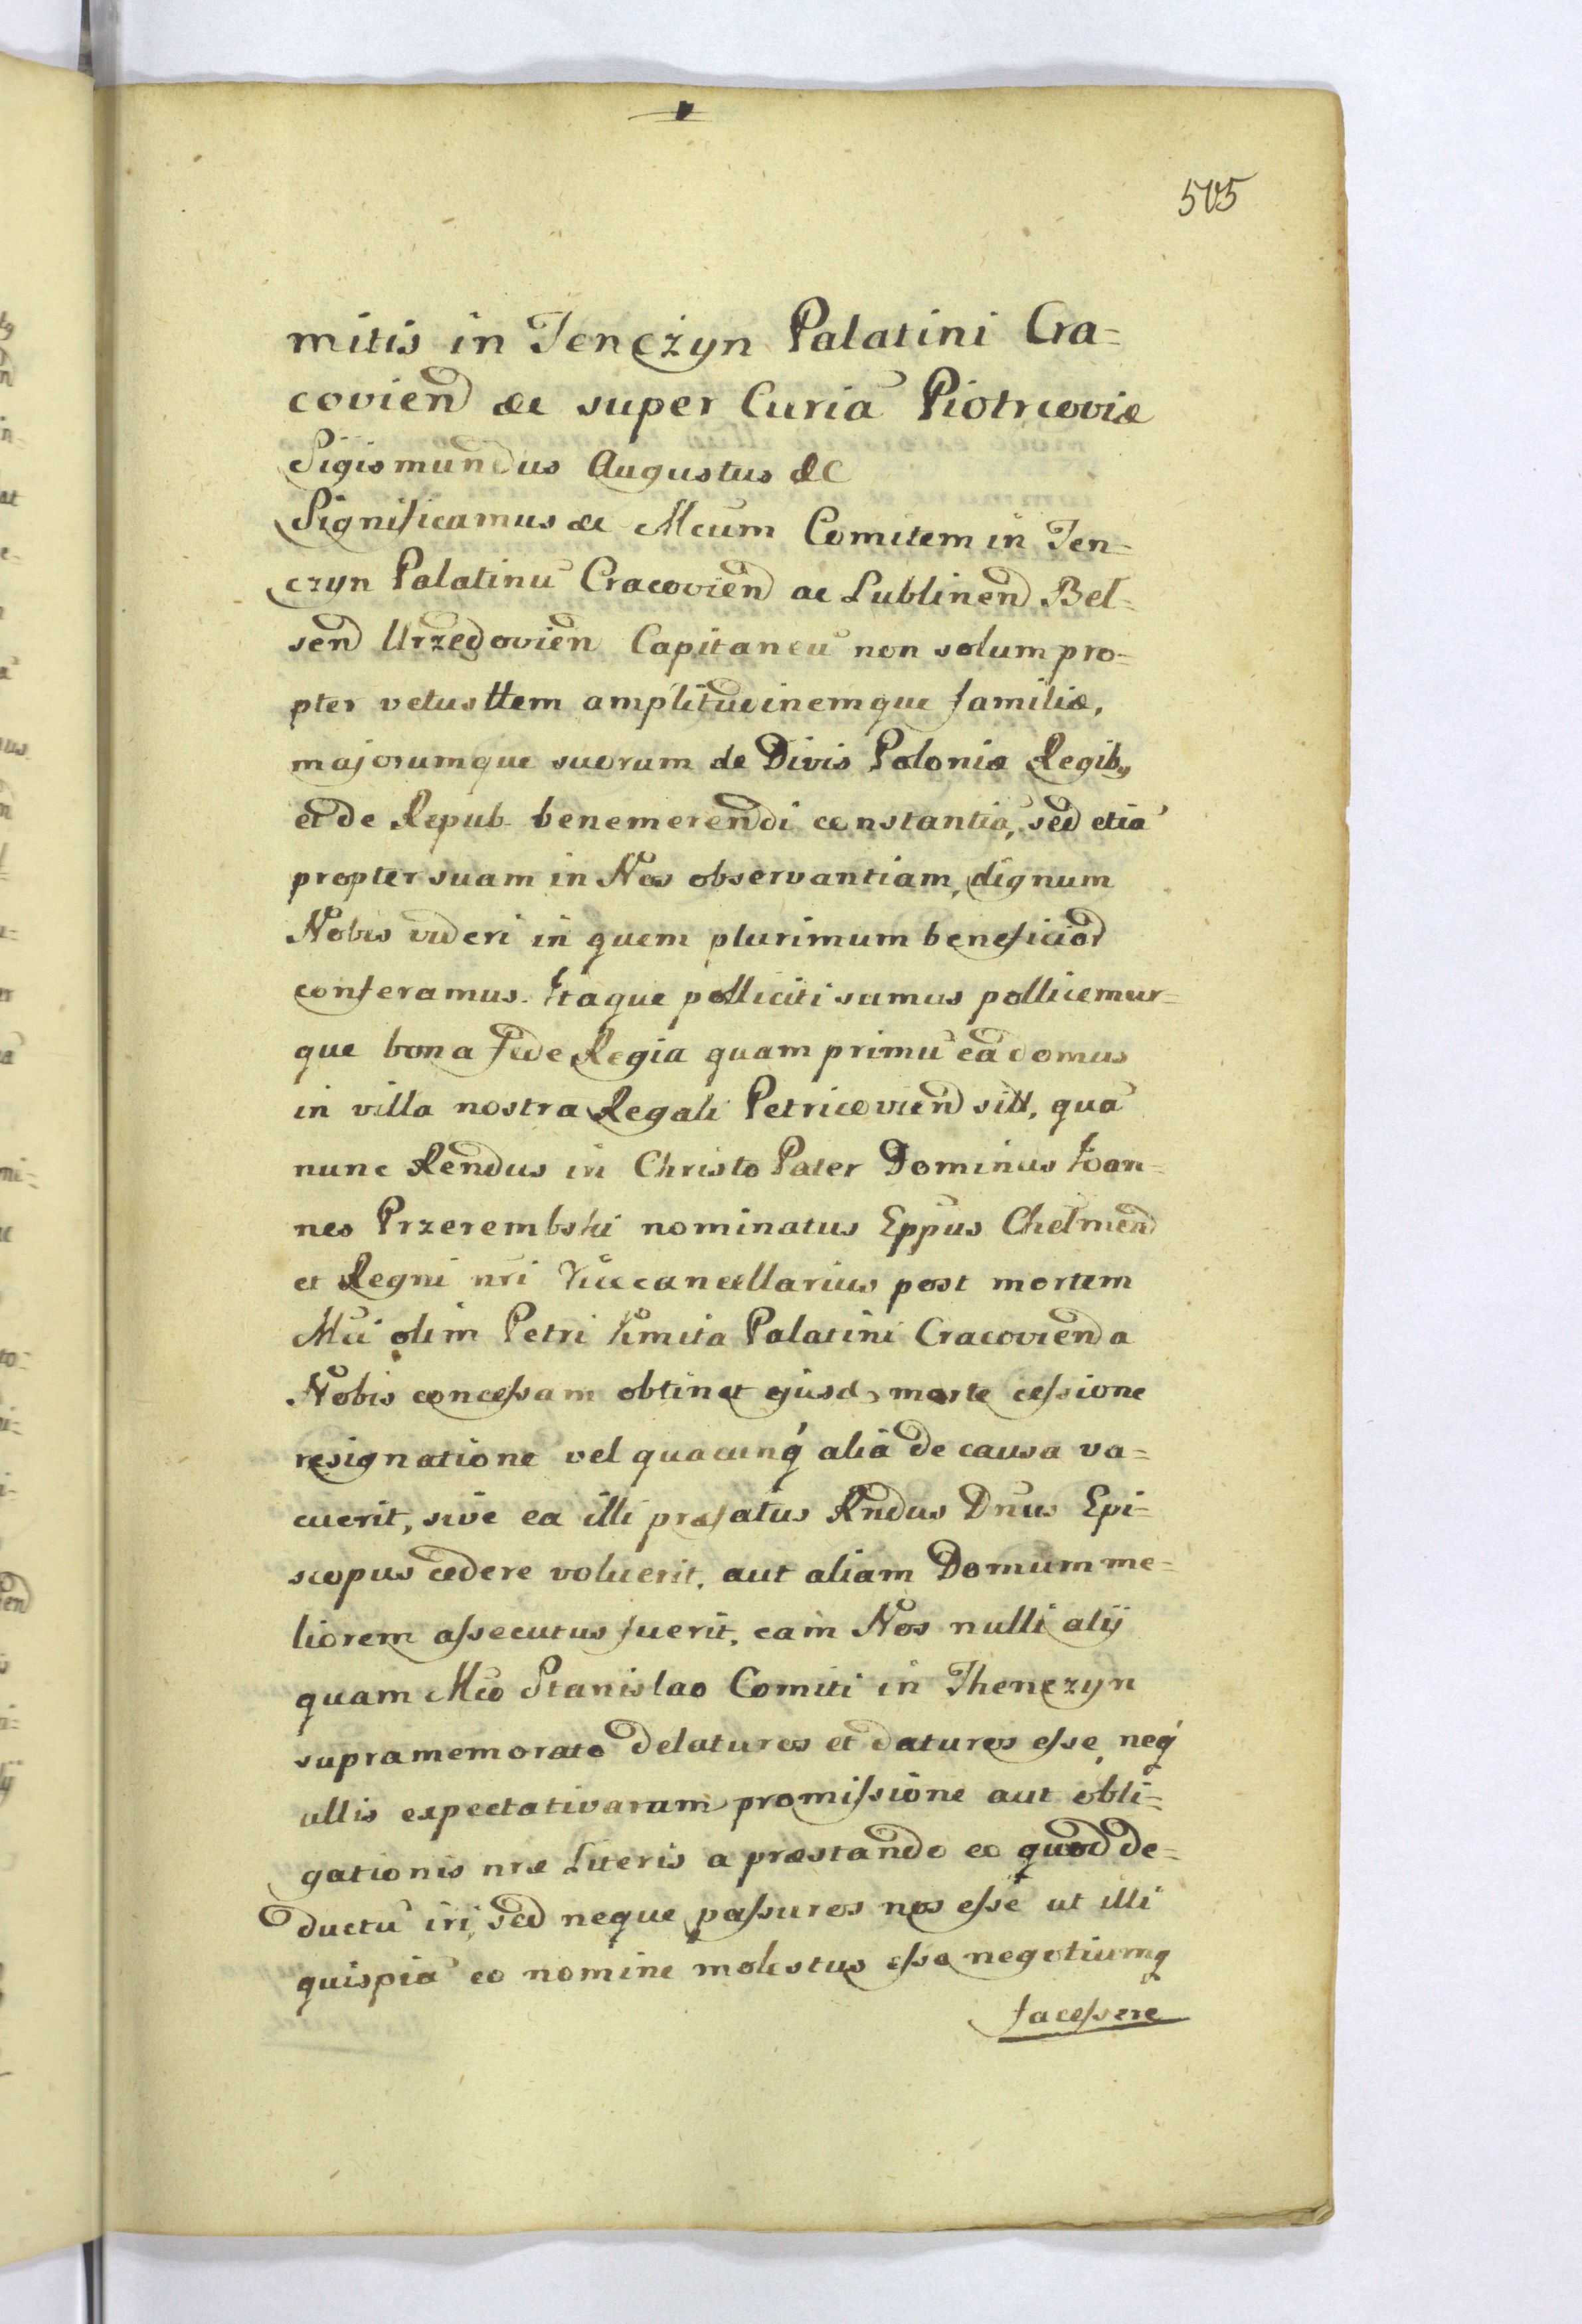 505
mitis in Tenczyn Palatini Cra=
covien &c super Curia Piotrcoviæ
Sigismundus Augustus &c
Significamus &c Mcum Comitem in Ten=
czyn Palatinu Cracovien ac Lublinen Bel=
sen Urzedovien Capitaneu non solum pro=
pter vetusttem amplitudinemque familiæ,
majorumque suorum de Divis Poloniæ Regib9
et de Repub. benemerendi constantia, sed etia
propter suam in Nos observantiam, dignum
Nobis videri in quem plurimum beneficior
conferamus. Itaque polliciti sumus pollicemur=
que bona fide Regia quam primu ea domus
in villa nostra Regali Petricovien sitt, qua
nunc Rendus in Christo Pater Dominus Ioan=
nes Przerembski nominatus Eppus Chelmen
et Regni nri Vicecancellarius post mortem
Mci olim Petri Kmita Palatini Cracovien a
Nobis concessam obtinet ejusd morte cessione
resignatione vel quacunq alia de causa va=
cuerit, sive ea illi præfatus Rndus Dnus Epi=
scopus cedere voluerit, aut aliam Domum me=
liorem assecutus fuerit, eam Nos nulli alij
quam Mco Stanislao Comiti in Thenczyn
supramemorato delaturos et daturos esse, neq
ullis expectativarum promissione aut obli=
gationis nræ Literis a præstando eo quod de=
ductu iri, sed neque passuros nos esse ut illi
quispia eo nomine molestus esse negotiumq
facessere